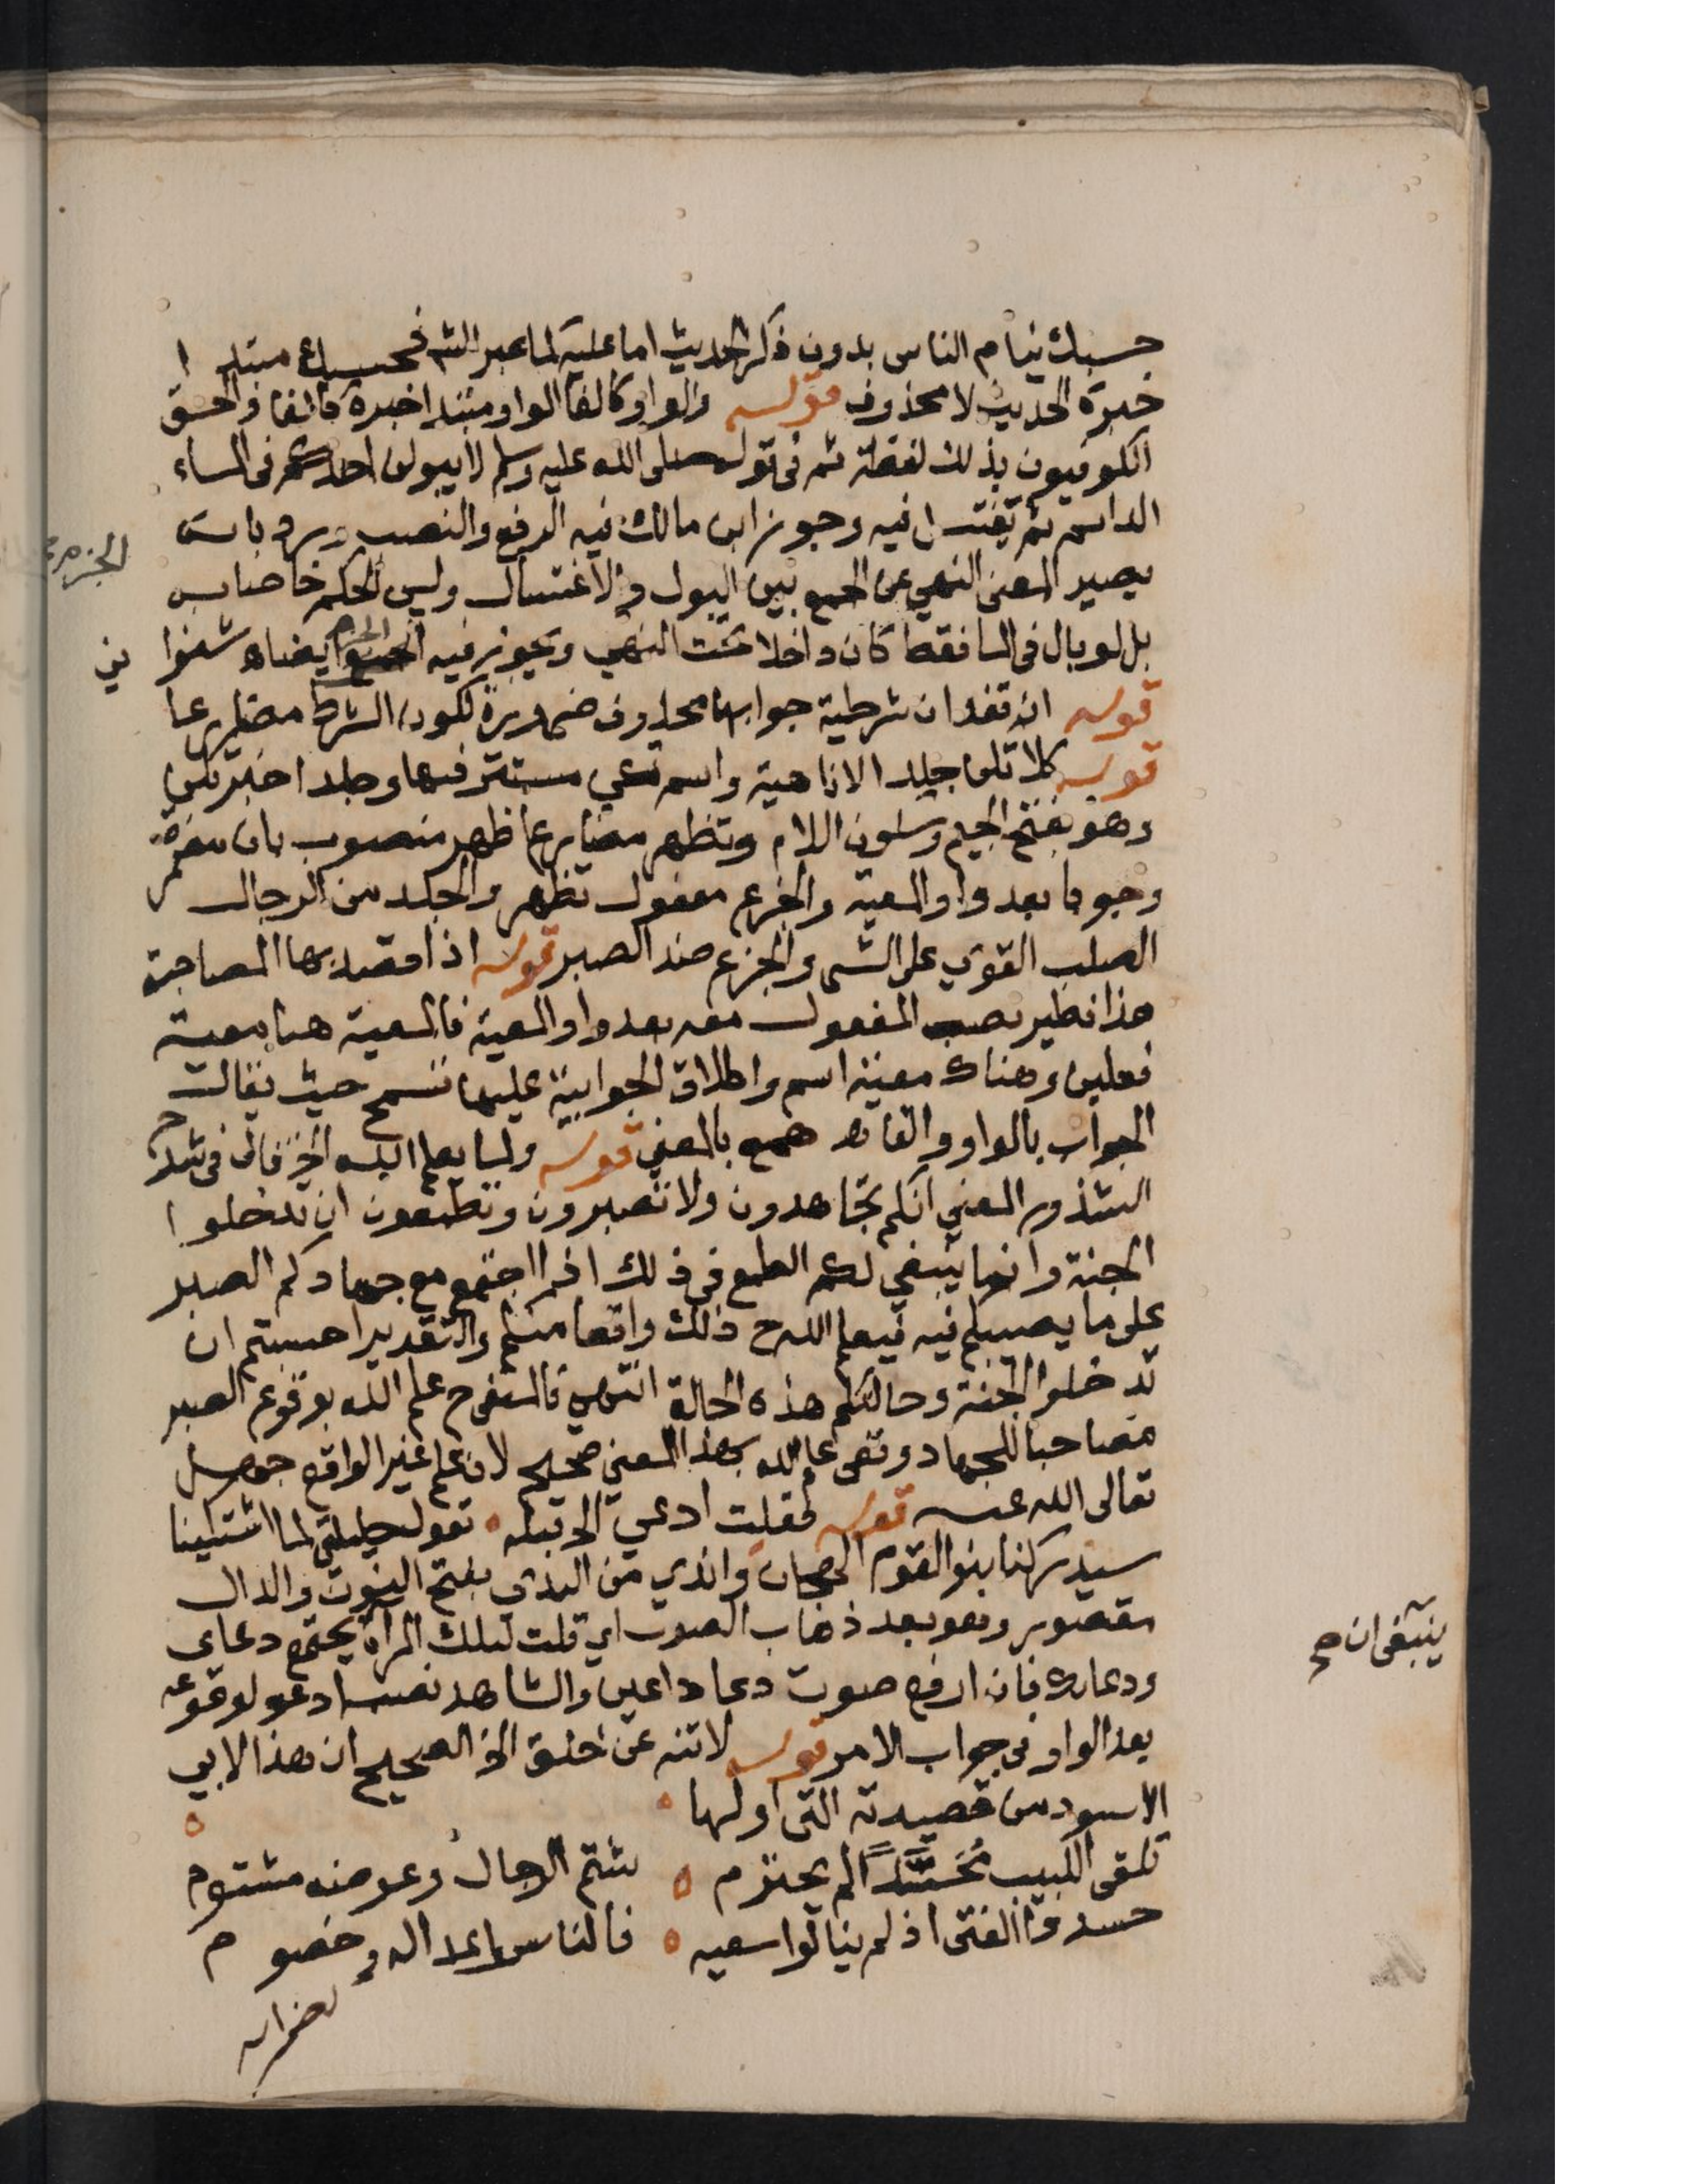 حسبك ينام الناس بدون ذكر الحديث اما عليه كما عبر الش فحسبك مبتدا
خبره الحديث لا محذوف قوله والواو كالفا الواو مبتدا خبره كالفا والحق
الكوفيون بذلك لفظة ثم في قوله صلى الله عليه وسلم لا يبولن احدكم في الماء
الدائم ثم يغتسل فيه وجوز ابن مالك فيه الرفع والنصب ورد بانه
يصير المعنى النهي عن الجمع بين البول والاغتسال وليس الحكم خاصا به
بل لو بال في الما فقط كان داخلا تحت النهي ويجوز فيه الجزم ايضا اه شنوا ني
قوله ان تفد ان شرطية جوابها محذوف ضرورة لكون الشرط مضارعا
قوله كلا تكن جلدا لا ناهية واسم تكن مستتر فيها وجلدا خبر تكن
وهو بفتح الجيم وسكون اللام وتظهر مضارع اظهر منصوب بان مضمرة
وجوبا بعد واو المعية والجزع مفعول تظهر والجلد من الرجال
الصلب القوي على الشي والجزع ضد الصبر قوله اذا قصد بها المصاحبة
هذا نظير نصب المفعول معه بعد واو المعية فالمعية هنا معية
فعلين وهناك معية اسم واطلاق الجوابية عليها تسمح حيث يقال
الجواب بالواو والفا اه همع بالمعنى قوله ولما يعلم الله الخ قال في شرح
الشذور المعنى انكم تجاهدون ولا تصبرون وتطمعون ان تدخلوا
الجنة وانما ينبغي لكم الطمع في ذلك اذا اجتمع مع جهادكم الصبر
على ما يصيبكم فيه فيعلم الله ح ذلك واقعا منكم والتقدير احسبتم ان
تدخلوا الجنة وحالتكم هذه الحالة انتهي فالمنفي ح علم الله بوقوع الصبر
مصاحبا للجهاد ونفي علم الله بهذا المعنى صحيح لان علم غير الواقع جهل
تعالى الله عنه قوله فقلت ادعي الخ قبله تقول حليلتي لما اشتكينا
سيدركنا بنو القوم الهجان واندي من الندى بفتح النون والدال
مقصور وهو بعد ذهاب الصوت اي قلت لتلك المراة يجتمع دعاي
ودعاوك فان ارفع صوت دعا داعيين والشاهد نصب ادعو لوقوعه
بعد الواو في جواب الامر قوله لا تنه عن خلق الخ الصحيح ان هذا لابي
الاسود من قصيدته التي اولها
تلقى اللبيب محسدا لم يجترم شتم الرجال وعرضه مشتوم
حسدوا الفتى اذ لم ينالوا سعيه فالناس اعدا له وخصوم
كضرائر
الجزم
ينبغي ان صح